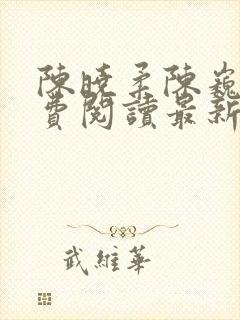 陳曉柔陳巍
費閱讀最新
武維華